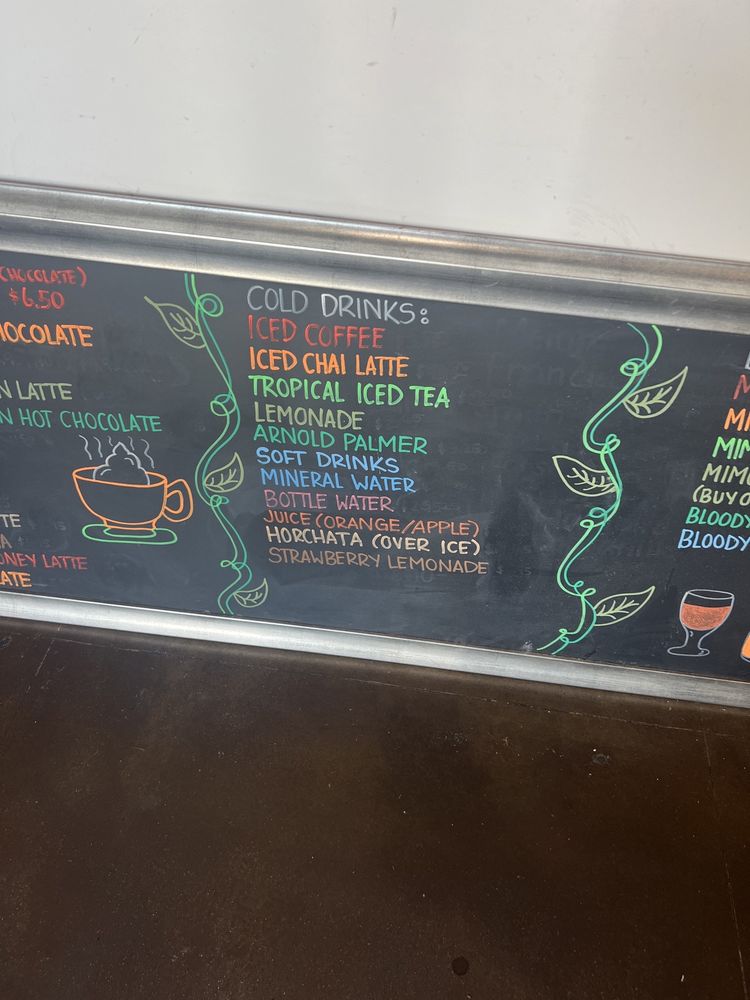 CHOCOLATE)
$6.50
HOCOLATE
N LATTE
N HOT CHOCOLATE
ONEY LATTE
COLD DRINKS:
ICED COFFEE
ICED CHAI LATTE
TROPICAL ICED TEA
LEMONADE
ARNOLD PALMER
SOFT DRINKS
MINERAL WATER
BOTTLE WATER
JUICE (ORANGE/APPLE)
HORCHATA (OVER ICE)
STRAWBERRY LEMONADE
(BUY
BLOODY
BLOODY